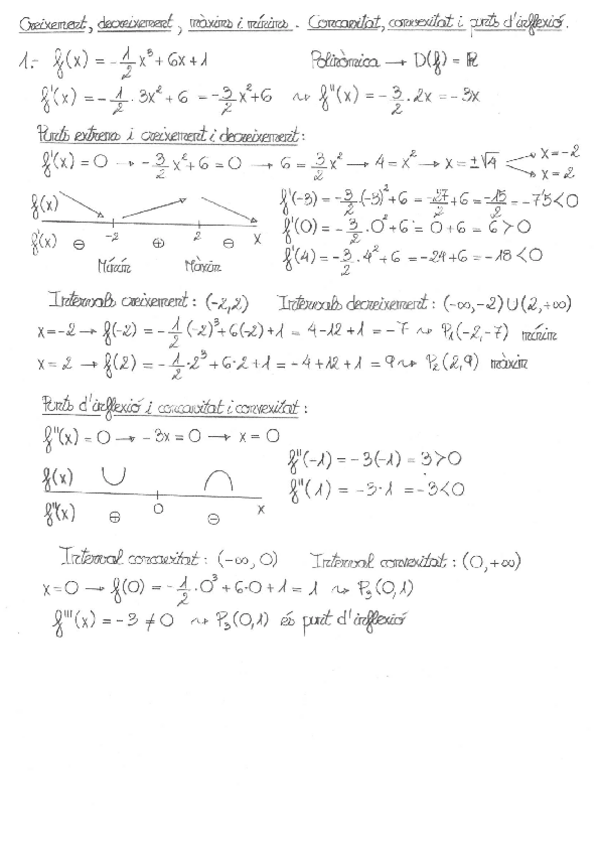 Creixement, decreixement, màxims i mínims. Concavitat, convexitat i punts d'inflexió.
1.- f(x) = -1/2 x³ + 6x + 1    Polinòmica → D(f) = ℝ
f'(x) = -1/2 · 3x² + 6 = -3/2 x² + 6 ⇝ f''(x) = -3/2 · 2x = -3x
Punts extrems i creixement i decreixement:
f'(x) = 0 → -3/2 x² + 6 = 0 → 6 = 3/2 x² → 4 = x² → x = ±√4 → x = -2
→ x = 2
f(x)    f'(-3) = -3/2 · (-3)² + 6 = -27/2 + 6 = -15/2 = -7'5 < 0
f'(0) = -3/2 · 0² + 6 = 0 + 6 = 6 > 0
f'(x) ⊖ -2 ⊕ 2 ⊖ x    f'(4) = -3/2 · 4² + 6 = -24 + 6 = -18 < 0
Mínim Màxim
Intervals creixement: (-2,2)    Intervals decreixement: (-∞,-2)∪(2,+∞)
x = -2 → f(-2) = -1/2 (-2)³ + 6(-2) + 1 = 4 - 12 + 1 = -7 ⇝ P₁(-2,-7) mínim
x = 2 → f(2) = -1/2 · 2³ + 6·2 + 1 = -4 + 12 + 1 = 9 ⇝ P₂(2,9) màxim
Punts d'inflexió i concavitat i convexitat:
f''(x) = 0 → -3x = 0 → x = 0
f''(-1) = -3(-1) = 3 > 0
f(x) ∪ ∩    f''(1) = -3·1 = -3 < 0
f''(x) ⊕ 0 ⊖ x
Interval concavitat: (-∞, 0)    Interval convexitat: (0,+∞)
x = 0 → f(0) = -1/2 · 0³ + 6·0 + 1 = 1 ⇝ P₃(0,1)
f'''(x) = -3 ≠ 0 ⇝ P₃(0,1) és punt d'inflexió